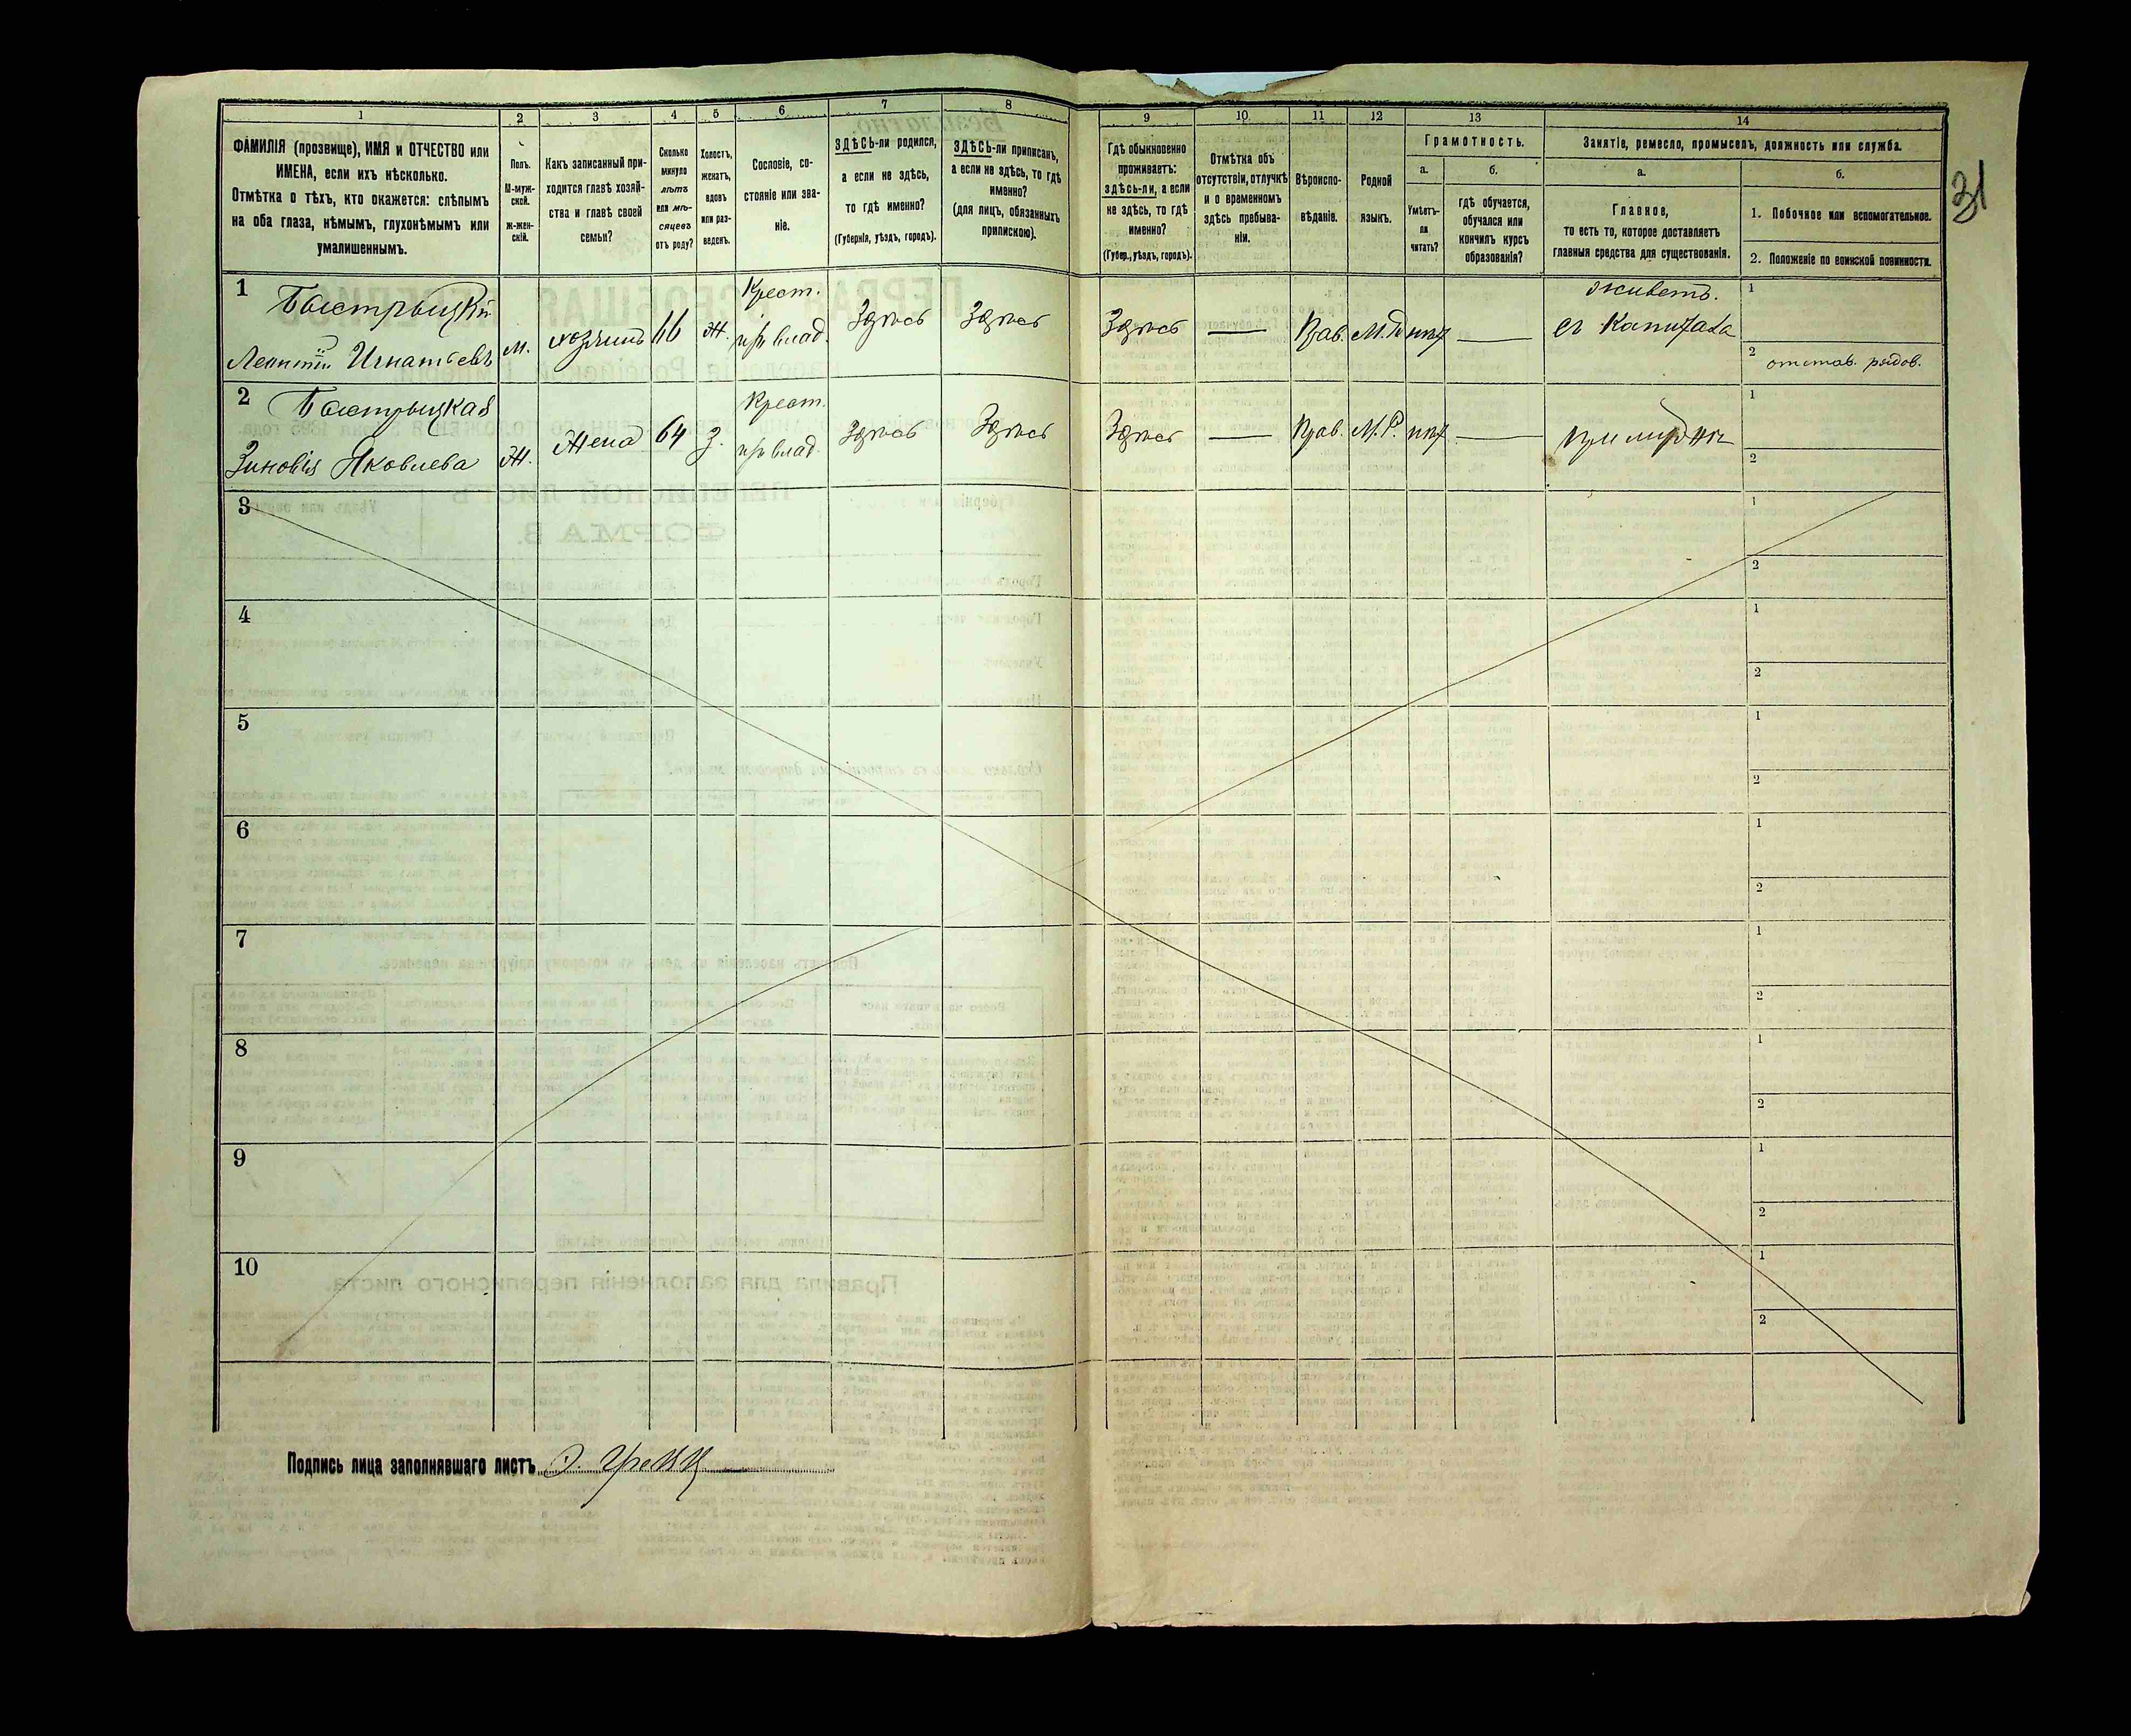 1
2
3
4
5
6
7
8
ФАМИЛІЯ (прозвище), ИМЯ и ОТЧЕСТВО или
ИМЕНА, если ихъ нѣсколько.
Отмѣтка о тѣхъ, кто окажется: слѣпымъ
на оба глаза, нѣмымъ, глухонѣмымъ или
умалишеннымъ.
Полъ.
М-муж-
ской.
ж-жен-
скій.
Какъ записанный при-
ходится главѣ хозяй-
ства и главѣ своей
семьи?
Сколько
минуло
лѣтъ
или мѣ-
сяцевъ
отъ роду?
Холостъ,
женатъ,
вдовъ
или раз-
веденъ.
Сословіе, со-
стояніе или зва-
ніе.
ЗДѢСЬ-ли родился,
а если не здѣсь,
то гдѣ именно?
(Губернія, уѣздъ, городъ).
ЗДѢСЬ-ли приписанъ,
а если не здѣсь, то гдѣ
именно?
(для лицъ, обязанныхъ
припискою).
9
10
11
12
13
14
Гдѣ обыкновенно
проживаетъ:
здѣсь-ли, а если
не здѣсь, то гдѣ
именно?
(Губер., уѣздъ, городъ).
Отмѣтка объ
отсутствіи, отлучкѣ
и о временномъ
здѣсь пребыва-
ніи.
Вѣроиспо-
вѣданіе.
Родной
языкъ.
Грамотность.
а.
б.
Умѣетъ-
ли
читать?
гдѣ обучается,
обучался или
кончилъ курсъ
образованія?
Занятіе, ремесло, промыселъ, должность или служба.
а.
б.
Главное,
то есть то, которое доставляетъ
главныя средства для существованія.
1. Побочное или вспомогательное.
2. Положеніе по воинской повинности.
31
1
Быстрыцкій
Леонтій Игнатьевъ
м.
хозяинъ
66
ж.
Крест.
из влад.
Здѣсь
Здѣсь
Здѣсь
—
Прав.
М.Р.
нѣт
—
живетъ.
съ капитала
1
2
отстав. рядов.
2
Быстрыцкая
Зиновія Яковлева
Ж.
Жена
64
З.
Крест.
из влад.
Здѣсь
Здѣсь
Здѣсь
—
Прав.
М.Р.
нѣт
—
при мужѣ
1
2
3
1
2
4
1
2
5
1
2
6
1
2
7
1
2
8
1
2
9
1
2
10
1
2
Подпись лица заполнявшаго листъ